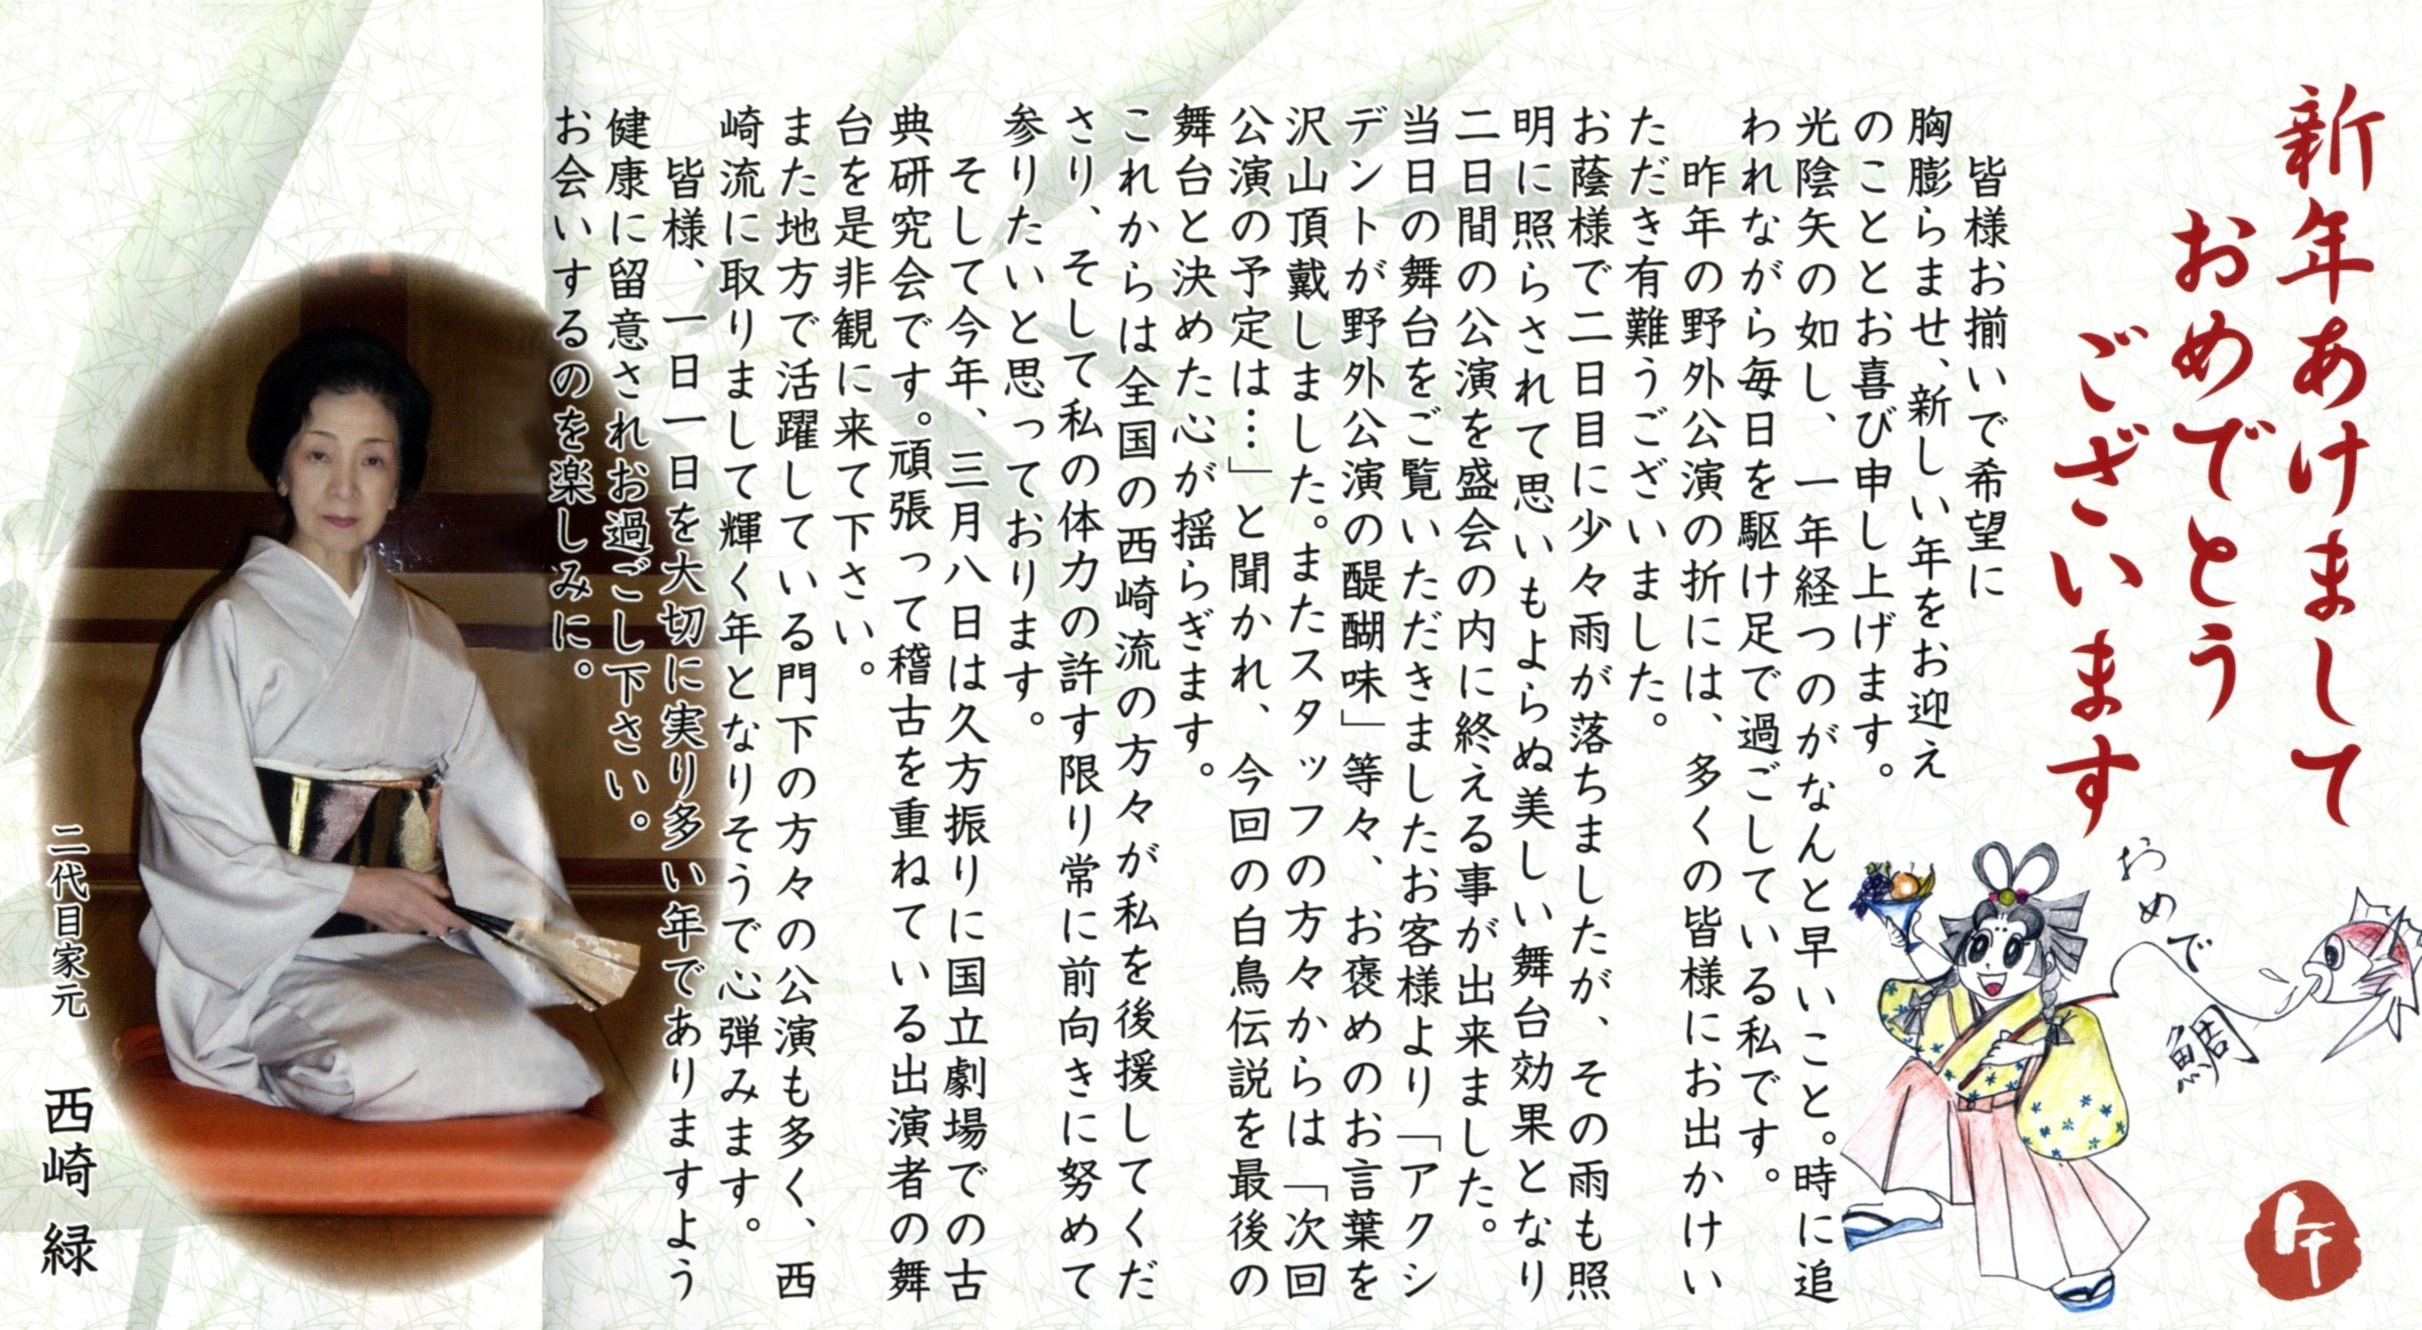 新年あけまして
おめでとう
ございます
おめで
鯛
午
皆様お揃いで希望に
胸膨らませ、新しい年をお迎え
のこととお喜び申し上げます。
光陰矢の如し、一年経つのがなんと早いこと。時に追
われながら毎日を駆け足で過ごしている私です。
昨年の野外公演の折には、多くの皆様にお出かけい
ただき有難うございました。
お蔭様で二日目に少々雨が落ちましたが、その雨も照
明に照らされて思いもよらぬ美しい舞台効果となり
二日間の公演を盛会の内に終える事が出来ました。
当日の舞台をご覧いただきましたお客様より「アクシ
デントが野外公演の醍醐味」等々、お褒めのお言葉を
沢山頂戴しました。またスタッフの方々からは「次回
公演の予定は…」と聞かれ、今回の白鳥伝説を最後の
舞台と決めた心が揺らぎます。
これからは全国の西崎流の方々が私を後援してくだ
さり、そして私の体力の許す限り常に前向きに努めて
参りたいと思っております。
そして今年、三月八日は久方振りに国立劇場での古
典研究会です。頑張って稽古を重ねている出演者の舞
台を是非観に来て下さい。
また地方で活躍している門下の方々の公演も多く、西
崎流に取りまして輝く年となりそうで心弾みます。
皆様、一日一日を大切に実り多い年でありますよう
健康に留意されお過ごし下さい。
お会いするのを楽しみに。
二代目家元 西崎 緑